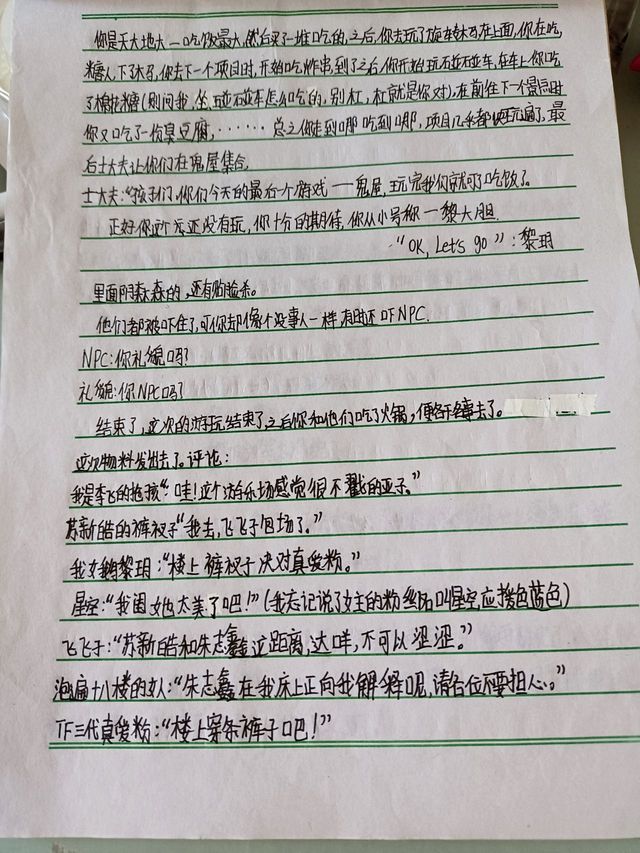 你是天大地大一吃饭最大,然后买了一堆吃的,之后,你去玩了旋转木马,在上面,你在吃,
糖人,下了木马,你去下一个项目时,开始吃炸串,到了之后,你开始玩碰碰车,在车上,你吃
了棉花糖(别问我,坐碰碰车怎么吃的,别杠,杠就是你对),在前往下一个景点时
你又吃了一份臭豆腐,……总之你走到哪吃到哪,项目几乎都快玩遍了,最
后士大夫让你们在鬼屋集合,
士大夫:“孩子们,你们今天的最后个游戏——鬼屋,玩完我们就可以吃饭了。
正好你这个还没有玩,你十分的期待,你从小号称一黎大胆.
“OK, Let's go”:黎玥
里面阴森森的,还有贴脸杀。
他们都被吓住了,可你却像个没事人一样,有时还吓NPC.
NPC:你礼貌吗?
礼貌:你NPC吗?
结束了,这次的游玩结束了,之后你和他们吃了火锅,便各回各寝去了。
这次物料发出去了。评论:
我是李飞的抱孩“:哇!这个游乐场感觉很不戳的亚子。”
苏新皓的裤衩子“我去,飞飞子包场了。”
我女鹅黎玥:“楼上裤衩子决对真爱粉。”
星空:“我囡她太美了吧!”(我忘记说了女主的粉丝名叫星空应援色蓝色)
飞飞子:“苏新皓和朱志鑫这距离,达咩,不可以涩涩。”
泡遍十八楼的女人:“朱志鑫在我床上正向我解释呢,请各位不要担心。”
TF三代真爱粉:“楼上穿条裤子吧!”